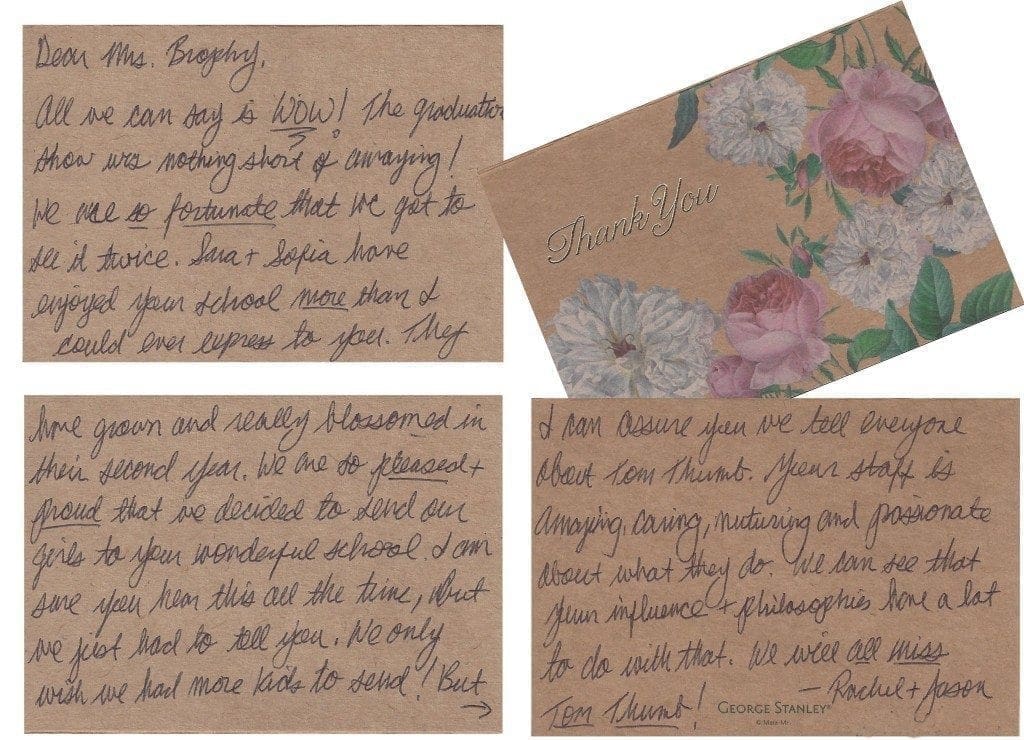 Dear Mrs. Brophy,
All we can say is WOW! The graduation
show was nothing short of amazing!
We are so fortunate that we got to
see it twice. Sara + Sofia have
enjoyed your school more than I
could ever express to you. They
Thank You
have grown and really blossomed in
their second year. We are so pleased +
proud that we decided to send our
girls to your wonderful school. I am
sure you hear this all the time, but
we just had to tell you. We only
wish we had more kids to send! But
→
I can assure you we tell everyone
about Tom Thumb. Your staff is
amazing, caring, nuturing and passionate
about what they do. We can see that
your influence + philosophies have a lot
to do with that. We will all miss
Tom Thumb!
— Rachel + Jason
GEORGE STANLEY®